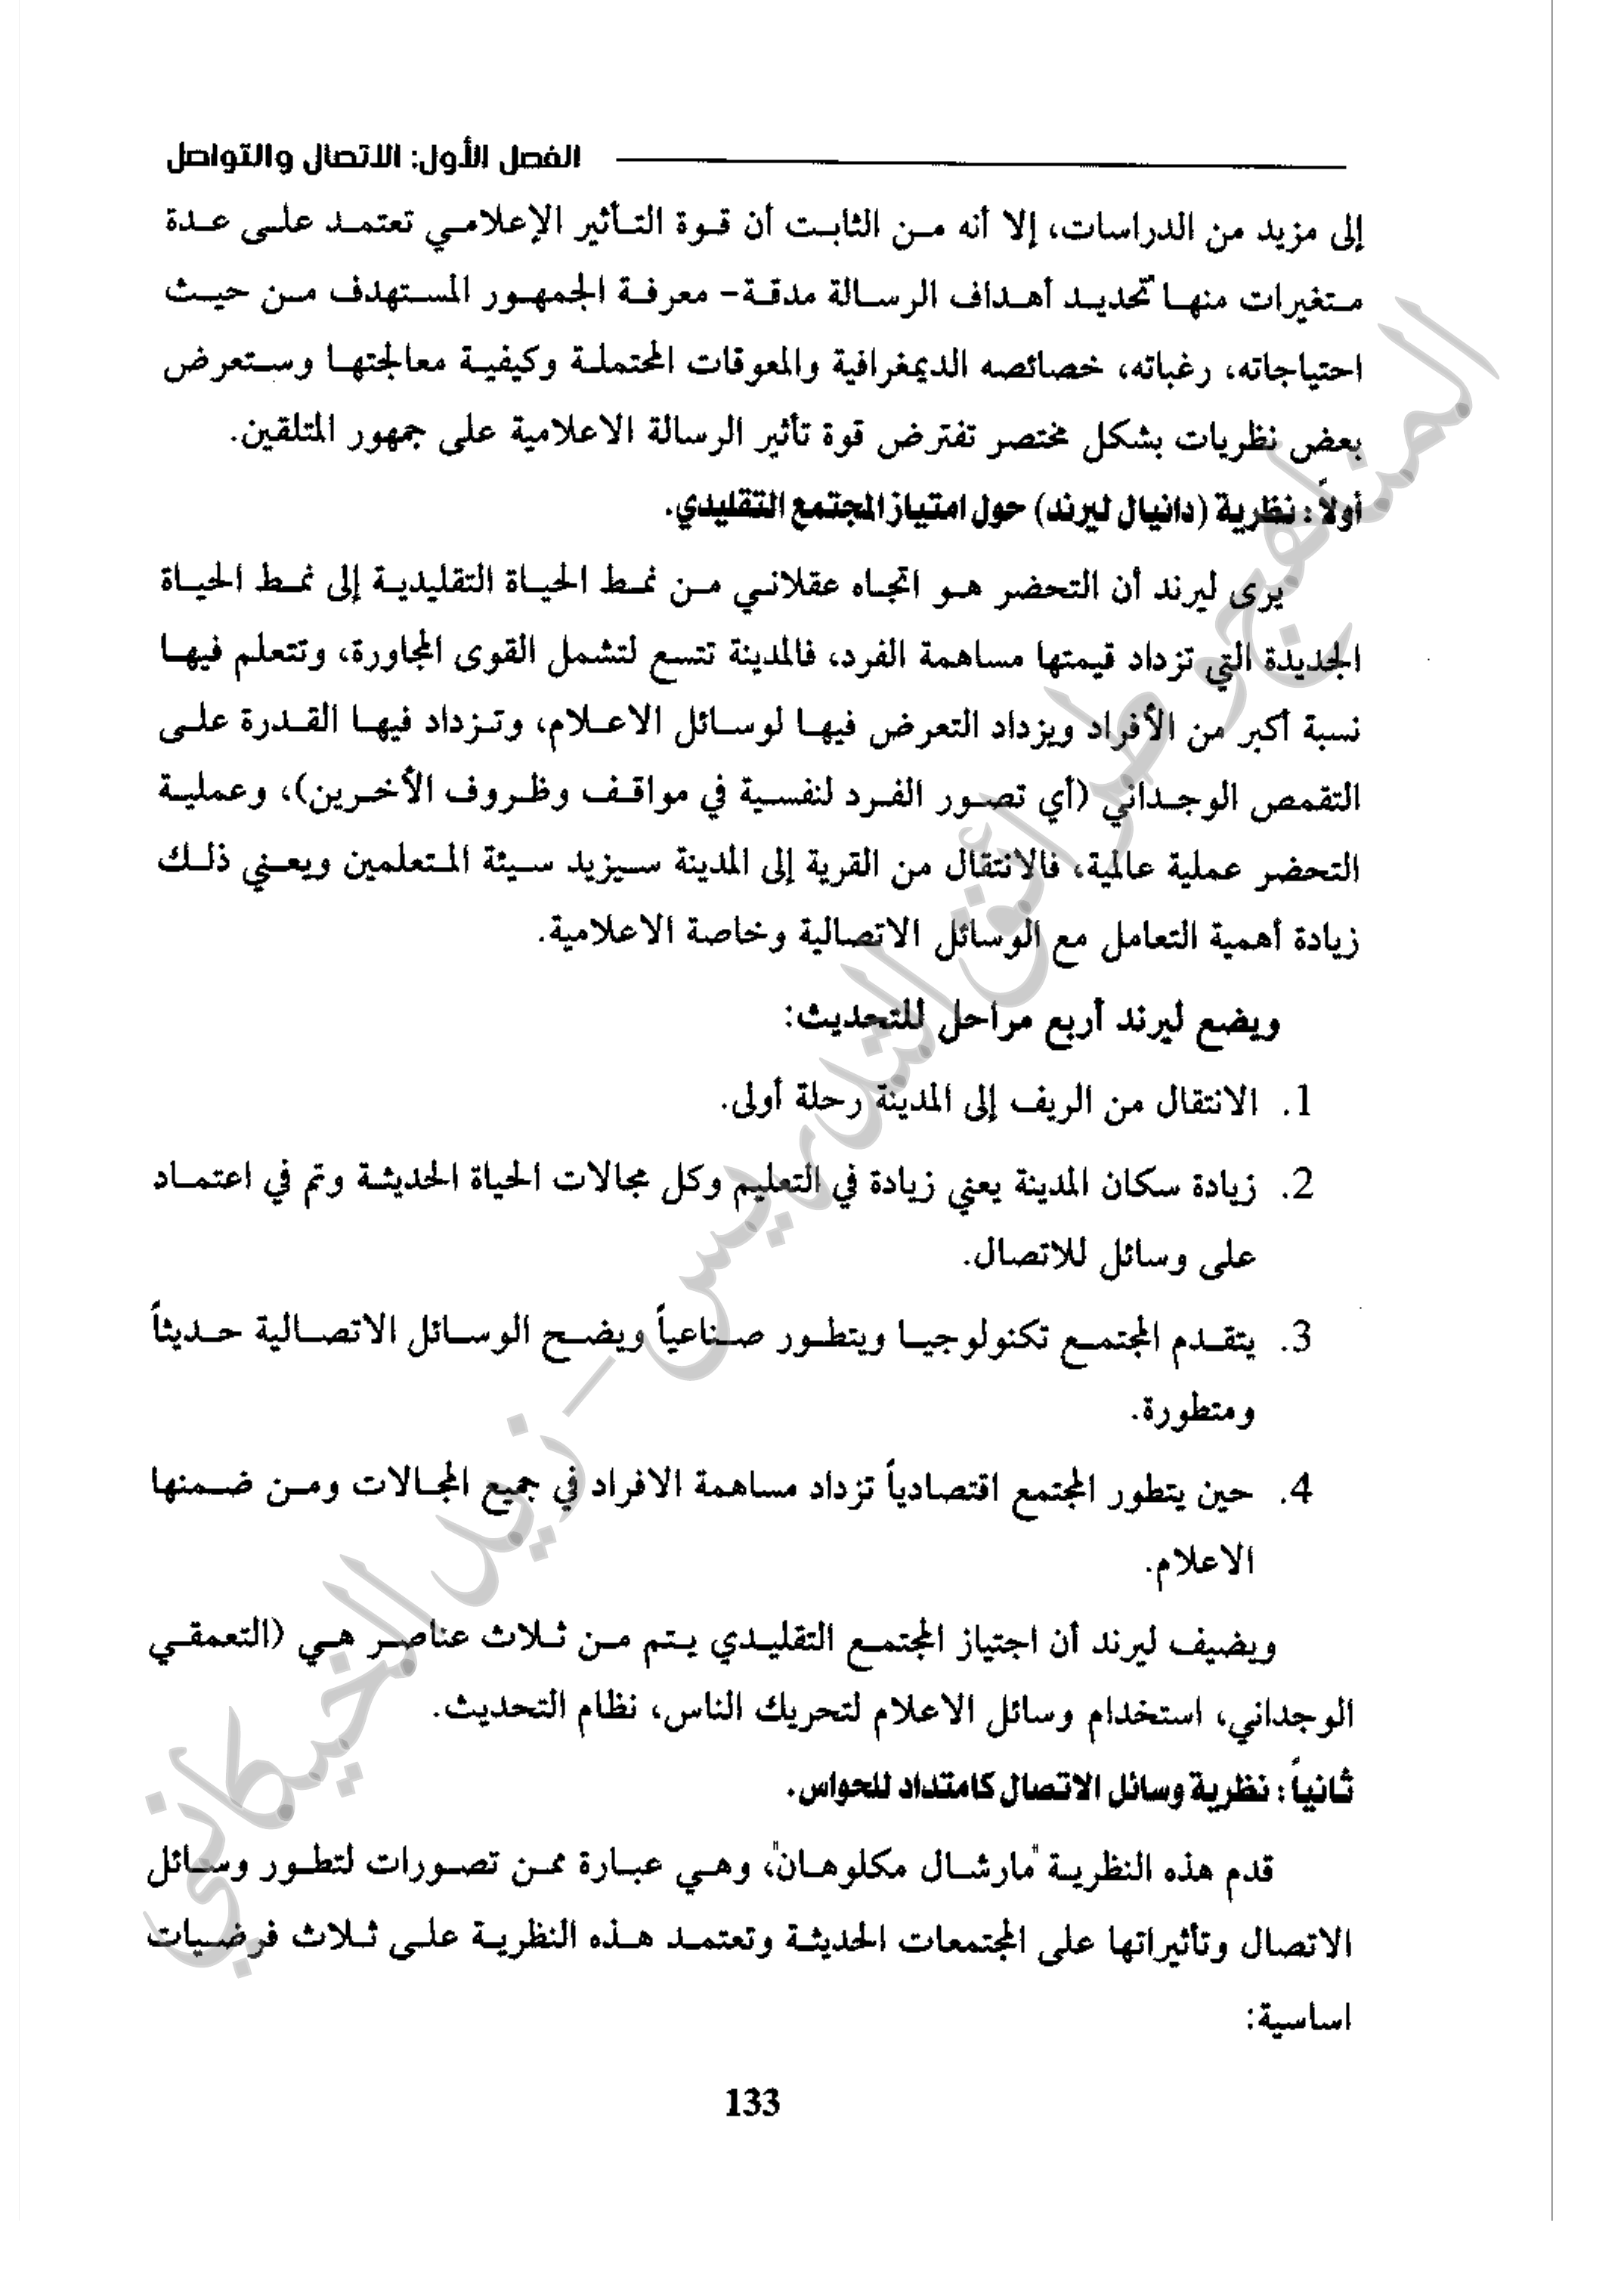 الفصل الأول: الاتصال والتواصل
إلى مزيد من الدراسات، إلا أنه من الثابت أن قوة التأثير الإعلامي تعتمد على عدة
متغيرات منها تحديد أهداف الرسالة مدقة- معرفة الجمهور المستهدف من حيث
احتياجاته، رغباته، خصائصه الديمغرافية والمعوقات المحتملة وكيفية معالجتها وستعرض
بعض نظريات بشكل مختصر تفترض قوة تأثير الرسالة الاعلامية على جمهور المتلقين.
أولاً: نظرية (دانيال ليرند) حول امتياز المجتمع التقليدي.
يرى ليرند أن التحضر هو اتجاه عقلاني من نمط الحياة التقليدية إلى نمط الحياة
الجديدة التي تزداد قيمتها مساهمة الفرد، فالمدينة تتسع لتشمل القوى المجاورة، وتتعلم فيها
نسبة أكبر من الأفراد ويزداد التعرض فيها لوسائل الاعلام، وتزداد فيها القدرة على
التقمص الوجداني (أي تصور الفرد لنفسية في مواقف وظروف الأخرين)، وعملية
التحضر عملية عالمية، فالانتقال من القرية إلى المدينة سيزيد سيئة المتعلمين ويعني ذلك
زيادة أهمية التعامل مع الوسائل الاتصالية وخاصة الاعلامية.
ويضع ليرند أربع مراحل للتحديث:
1. الانتقال من الريف إلى المدينة رحلة أولى.
2. زيادة سكان المدينة يعني زيادة في التعليم وكل مجالات الحياة الحديثة وتم في اعتماد
على وسائل للاتصال.
3. يتقدم المجتمع تكنولوجيا ويتطور صناعياً ويضح الوسائل الاتصالية حديثاً
ومتطورة.
4. حين يتطور المجتمع اقتصادياً تزداد مساهمة الافراد في جميع المجالات ومن ضمنها
الاعلام.
ويضيف ليرند أن اجتياز المجتمع التقليدي يتم من ثلاث عناصر هي (التعمقي
الوجداني، استخدام وسائل الاعلام لتحريك الناس، نظام التحديث.
ثانياً: نظرية وسائل الاتصال كامتداد للحواس.
قدم هذه النظرية "مارشال مكلوهان"، وهي عبارة ممن تصورات لتطور وسائل
الاتصال وتأثيراتها على المجتمعات الحديثة وتعتمد هذه النظرية على ثلاث فرضيات
اساسية:
133
المناهج وطرائق التدريس - زيد الخيكاني